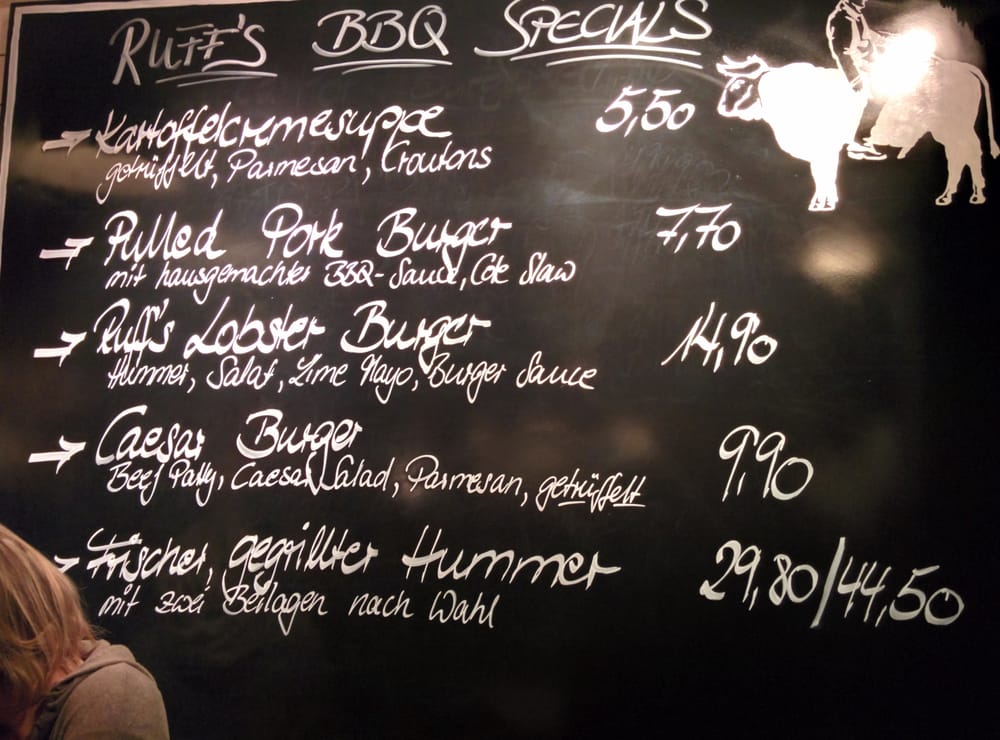 RUFF'S BBQ SPECIALS
→ Kartoffelcremesuppe 5,50
getrüffelt, Parmesan, Croutons
→ Pulled Pork Burger 7,70
mit hausgemachter BBQ-Sauce, Cole Slaw
→ Ruff's Lobster Burger 14,90
Hummer, Salat, Lime Mayo, Burger Sauce
→ Caesar Burger 9,90
Beef Patty, Caesar Salad, Parmesan, getrüffelt
→ Frischer, gegrillter Hummer 29,80/44,50
mit zwei Beilagen nach Wahl